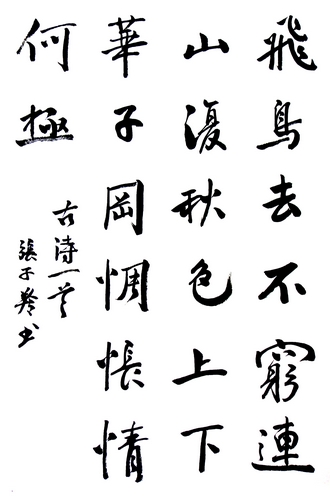 飛鳥去不窮連
山復秋色上下
華子岡惆悵情
何極
古詩一首
張子书